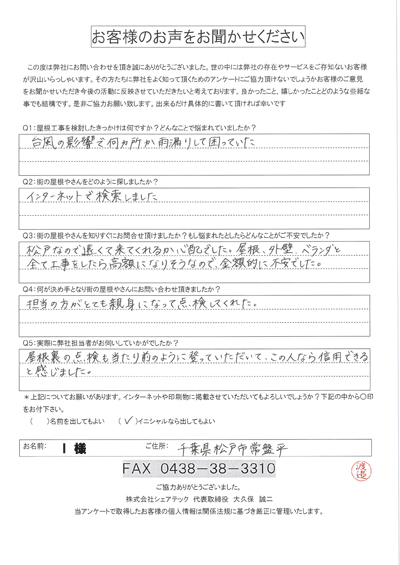 お客様のお声をお聞かせください
この度は弊社にお問い合わせを頂き誠にありがとうございました。世の中には弊社の存在やサービスをご存知ないお客様
が沢山いらっしゃいます。その方たちに弊社をよく知って頂くためのアンケートにご協力頂けないでしょうかお客様のご意見
をお聞かせいただき今後の活動に反映させていただきたいと考えております。良かったこと、嬉しかったことどのような些細な
事でも結構です。是非ご協力お願い致します。出来るだけ具体的に書いて頂ければ幸いです
Q1:屋根工事を検討したきっかけは何ですか?どんなことで悩まれていましたか?
台風の影響で何カ所か雨漏りして困っていた
Q2:街の屋根やさんをどのように探しましたか?
インターネットで検索しました
Q3:街の屋根やさんを知りすぐにお問合せ頂けましたか?もし悩まれたとしたらどんなことがご不安でしたか?
松戸なので遠くて来てくれるか心配でした。屋根、外壁、ベランダと
全て工事をしたら高額になりそうなので、金額的に不安でした。
Q4:何が決め手となり街の屋根やさんにお問い合わせ頂けましたか?
担当の方がとても親身になって点検してくれた。
Q5:実際に弊社担当者がお伺いしていかがでしたか?
屋根裏の点検も当たり前のように登っていただいて、この人なら信用できる
と感じました。
*上記についてお願いがあります。インターネットや印刷物に掲載させていただいてもよろしいでしょうか?下記の中から〇印
をお付下さい。
( )名前を出してもよい (✓)イニシャルなら出してもよい
お名前: I 様 ご住所: 千葉県松戸市常盤平
FAX 0438-38-3310
渡邉
ご協力ありがとうございました。
株式会社シェアテック 代表取締役 大久保 誠二
当アンケートで取得したお客様の個人情報は関係法規に基づき厳正に管理いたします。